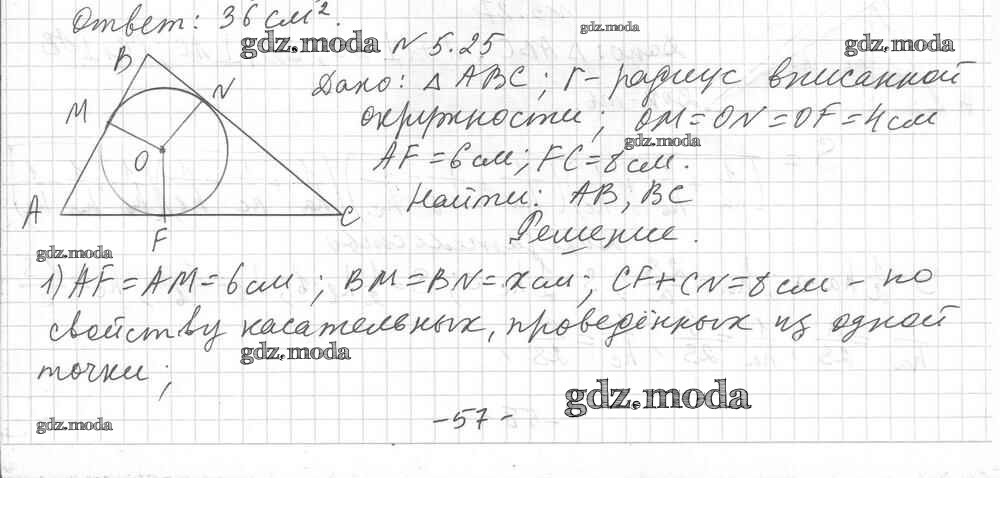 Ответ: 36 см².
gdz.moda
gdz.moda
N 5.25
gdz.moda
B
N
M
O
A
F
C
Дано: △ ABC; r - радиус вписанной
окружности; OM=ON=OF=4см
gdz.moda
AF=6см; FC=8см.
Найти: AB, BC
Решение.
gdz.moda
1) AF=AM=6см; BM=BN=xсм; CF+CN=8см - по
свойству касательных, проведённых из одной
gdz.moda
точки;
gdz.moda
gdz.moda
-57-